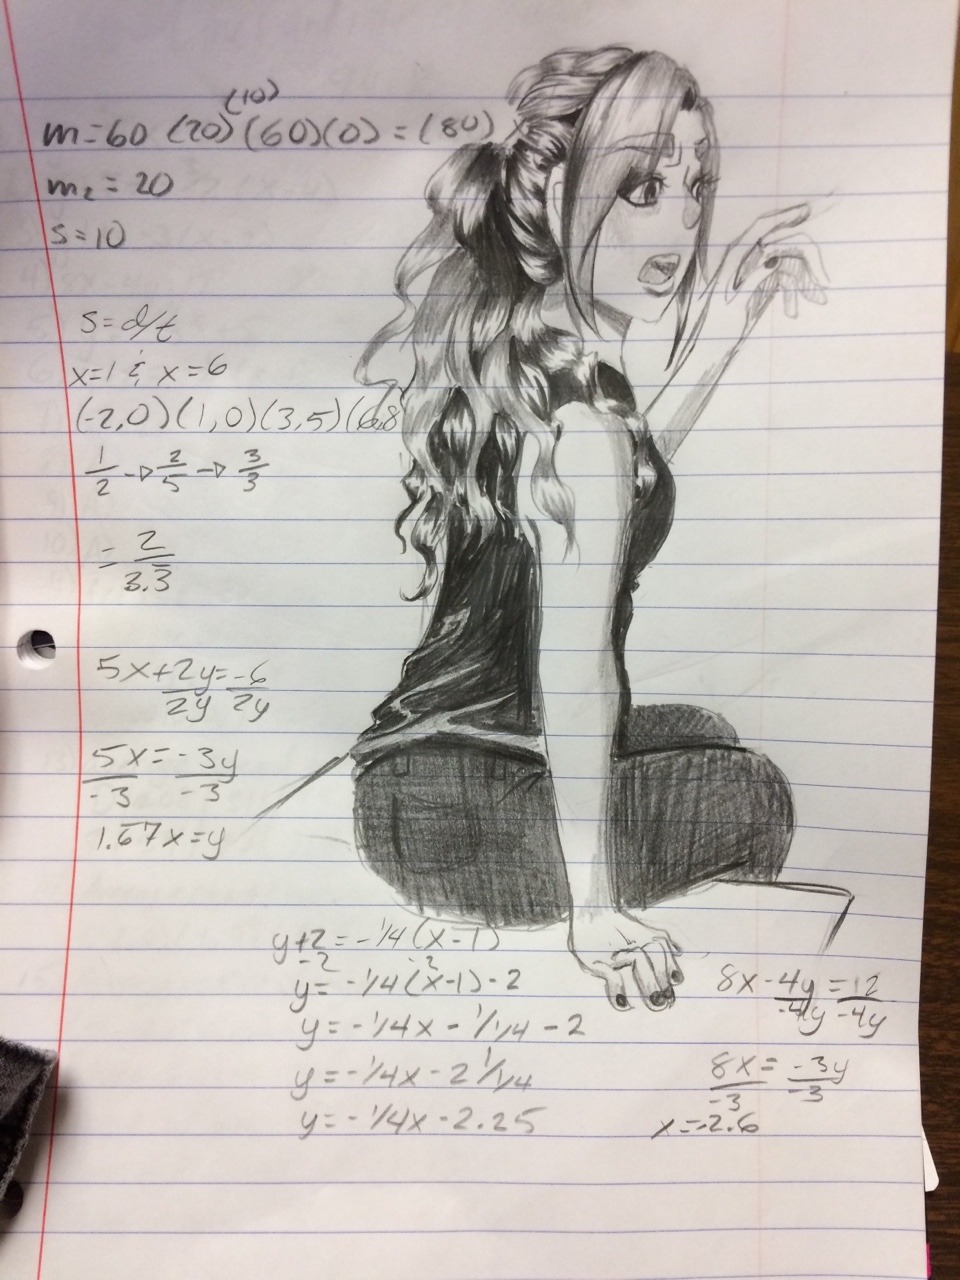 (10)
m=60 (20)(60)(0)=(80)
m₂=20
s=10
s=d/t
x=1 & x=6
(-2,0)(1,0)(3,5)(6,8
1/2 → 2/5 → 3/3
= 2/3.3
5x+2y=-6
2y 2y
5x=-3y
-3 -3
1.67x=y
y+2=-1/4(x-1)
-2 -2
y=-1/4(x-1)-2
y=-1/4x-1/1/4-2
y=-1/4x-2 1/1/4
y=-1/4x-2.25
8x-4y=12
-4y -4y
8x=-3y
-3 -3
x=-2.6